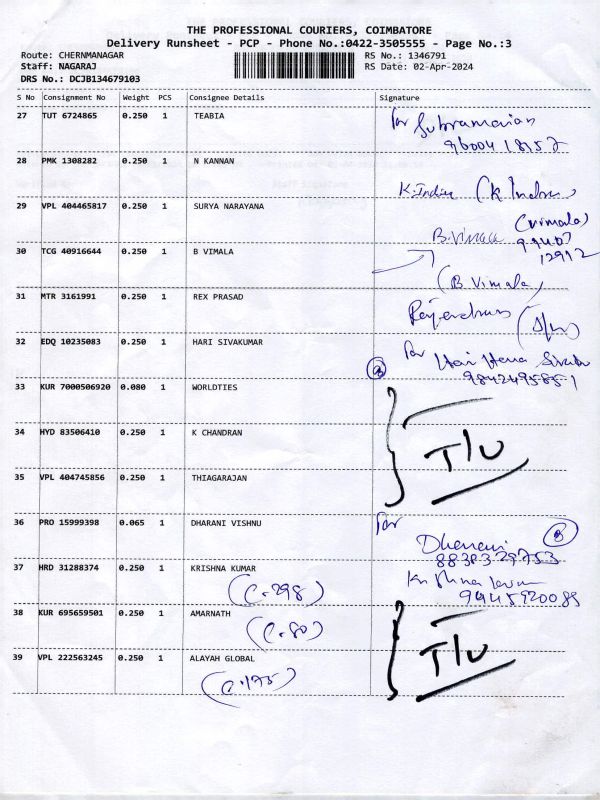 THE PROFESSIONAL COURIERS, COIMBATORE
Delivery Runsheet - PCP - Phone No.:0422-3505555 - Page No.:3
Route: CHERNMANAGAR RS No.: 1346791
Staff: NAGARAJ RS Date: 02-Apr-2024
DRS No.: DCJB134679103
S No Consignment No Weight PCS Consignee Details Signature
27 TUT 6724865 0.250 1 TEABIA for Subramanian
28 PMK 1308282 0.250 1 N KANNAN
K.Indra (K Indra)
29 VPL 404465817 0.250 1 SURYA NARAYANA (vimala)
B.Vimala 99407
12912
30 TCG 40916644 0.250 1 B VIMALA
(B Vimala)
31 MTR 3161991 0.250 1 REX PRASAD
32 EDQ 10235083 0.250 1 HARI SIVAKUMAR for
9842495851
33 KUR 7000506920 0.080 1 WORLDTIES
34 HYD 83506410 0.250 1 K CHANDRAN T/U
35 VPL 404745856 0.250 1 THIAGARAJAN
36 PRO 15999398 0.065 1 DHARANI VISHNU for
8838329753
37 HRD 31288374 0.250 1 KRISHNA KUMAR
(C.298) 9445920089
38 KUR 695659501 0.250 1 AMARNATH
(C.80)
39 VPL 222563245 0.250 1 ALAYAH GLOBAL T/U
(C.175)